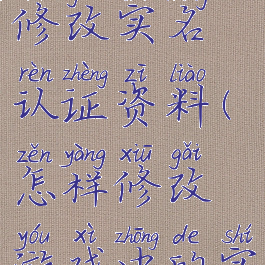 修改实名
rèn zhèng zī liào
认证资料(
zěn yàng xiū gǎi
怎样修改
yóu xì zhōng de shí
游戏中的实